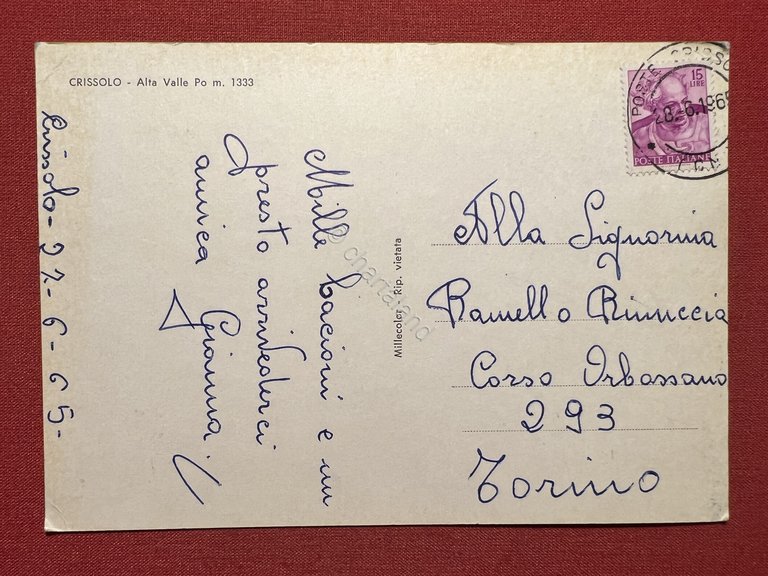 CRISSOLO - Alta Valle Po m. 1333
Crissolo - 27-6-65-
Mille bacioni e un
presto arrivederci
amica
Gianna
Millecolor - Rip. vietata
© chartaland
POSTE CRISSO
28.6.196
15
LIRE
POSTE ITALIANE
Alla Signorina
Ramello Rinuccia
Corso Orbassano
293
Torino